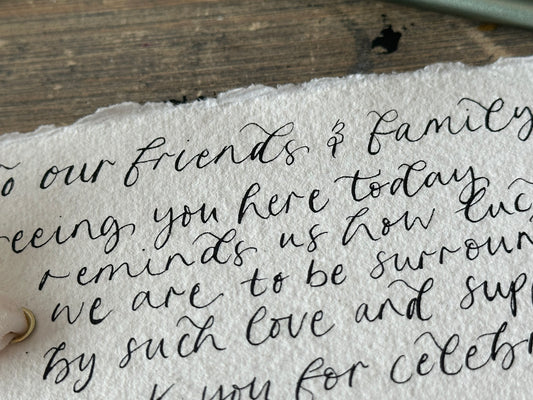 to our friends & family
seeing you here today
reminds us how luc
we are to be surroun
by such love and supp
k you for celebr